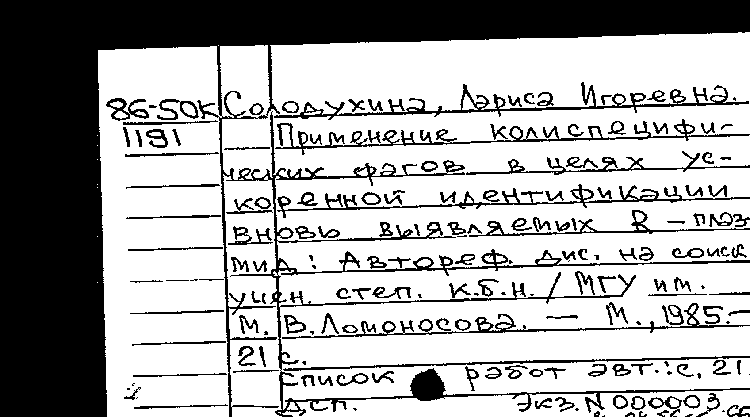 86-50К Солодухина, Лариса Игоревна.
1191 Применение колиспецифи-
ческих фагов в целях ус-
коренной идентификации
вновь выявляемых R-плаз-
мид: Автореф. дис. на соиск.
учен. степ. к.б.н. / МГУ им.
М. В. Ломоносова. — М., 1985.—
21 с.
Список работ авт.: с. 21.
Дсп. Экз. N 000003